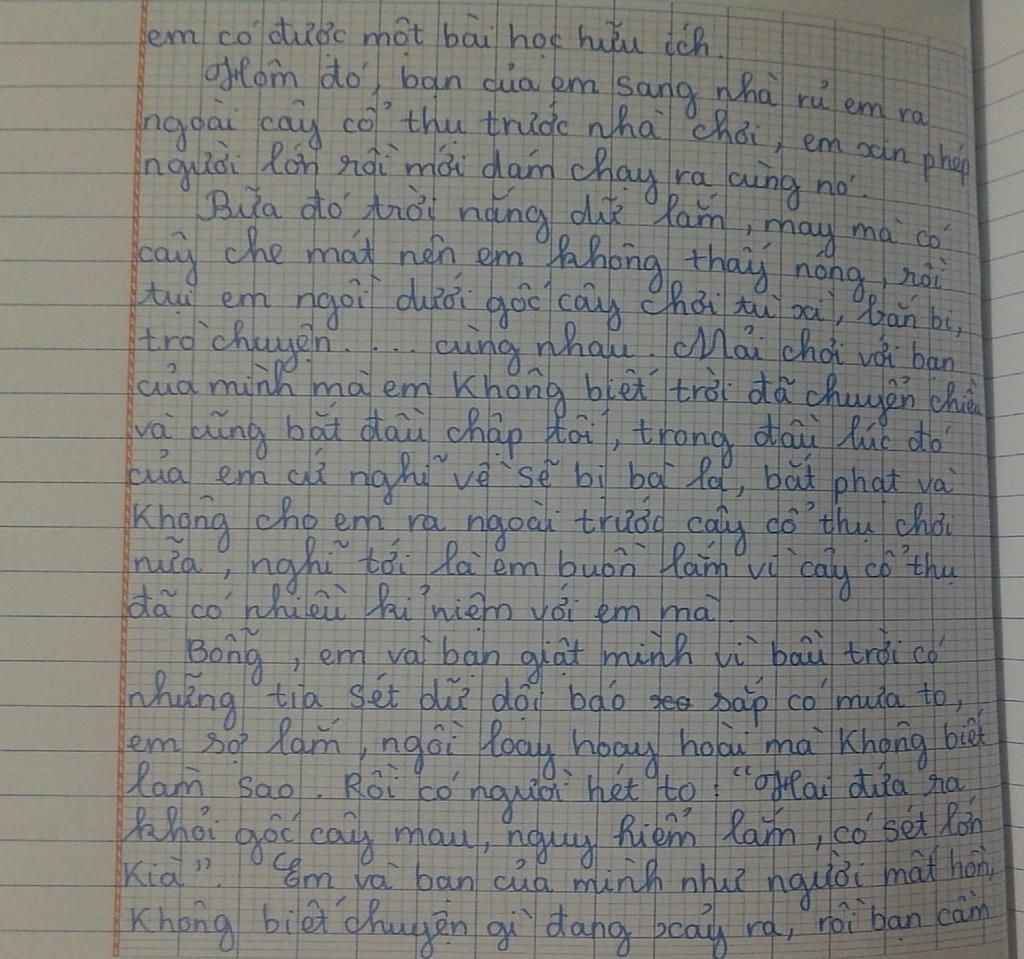 em có được một bài học hữu ích.
Hôm đó, bạn của em sang nhà rủ em ra
ngoài cây cổ thụ trước nhà chơi, em xin phép
người lớn rồi mới dám chạy ra cùng nó.
Bữa đó trời nắng dữ lắm, may mà có
cây che mát nên em không thấy nóng, rồi
tụi em ngồi dưới gốc cây chơi tù xì, bắn bi,
trò chuyện.... cùng nhau. Mải chơi với bạn
của mình mà em không biết trời đã chuyển chiều
và cũng bắt đầu chập tối, trong đầu lúc đó
của em cứ nghĩ về sẽ bị ba la, bắt phạt và
không cho em ra ngoài trước cây cổ thụ chơi
nữa, nghĩ tới là em buồn lắm vì cây cổ thụ
đã có nhiều kỉ niệm với em mà.
Bỗng, em và bạn giật mình vì bầu trời có
những tia sét dữ dội báo sắp có mưa to,
em sợ lắm, ngồi loay hoay hoài mà không biết
làm sao. Rồi có người hét to: "Hai đứa ra
khỏi gốc cây mau, nguy hiểm lắm, có sét lớn
kìa". Em và bạn của mình như người mất hồn,
không biết chuyện gì đang xảy ra, rồi bạn cầm